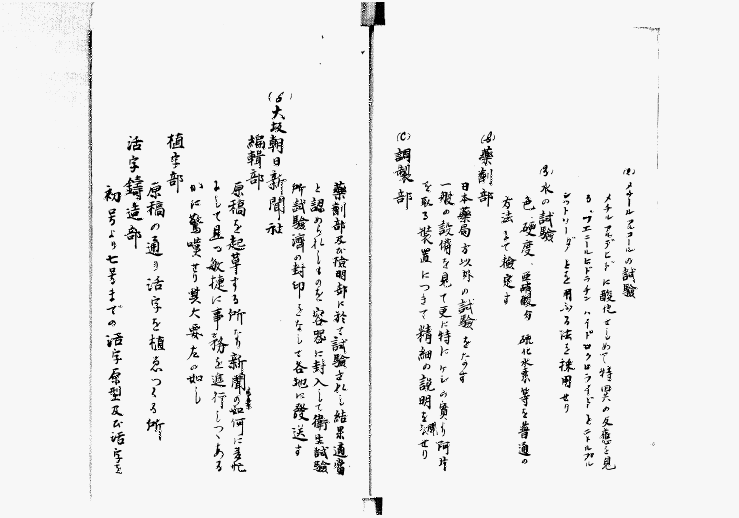 メチールアルコールの試驗
メチルアルデヒドに酸化せしめて特異の反應を見
る、フエニールヒドラチンハイドロクロライドとニトロプル
シツトソーダとを用ふる法を採用せり
水の試驗
色、硬度、亜硝酸分 硫化水素等を普通の
方法にて檢定す
(B) 藥劑部
日本藥局方以外の試驗をなす
一般の設備を見て更に特にケシの實より阿片
を取る裝置につきて精細の說明を
(C) 調製部
藥劑部及び檢明部に於て試驗されし結果適當
と認められしものを容器に封入して衛生試驗
所試驗濟の封印をなして各地に發送す
(6) 大坂朝日新聞社
編輯部
原稿を起草する所なり新聞の如何に多忙
にして且つ敏捷に事務を進行しつゝある
かに驚嘆せり其大要左の如し
植字部
原稿の通り活字を植ゑつくる所
活字鑄造部
初号より七号までの活字原型及び活字を